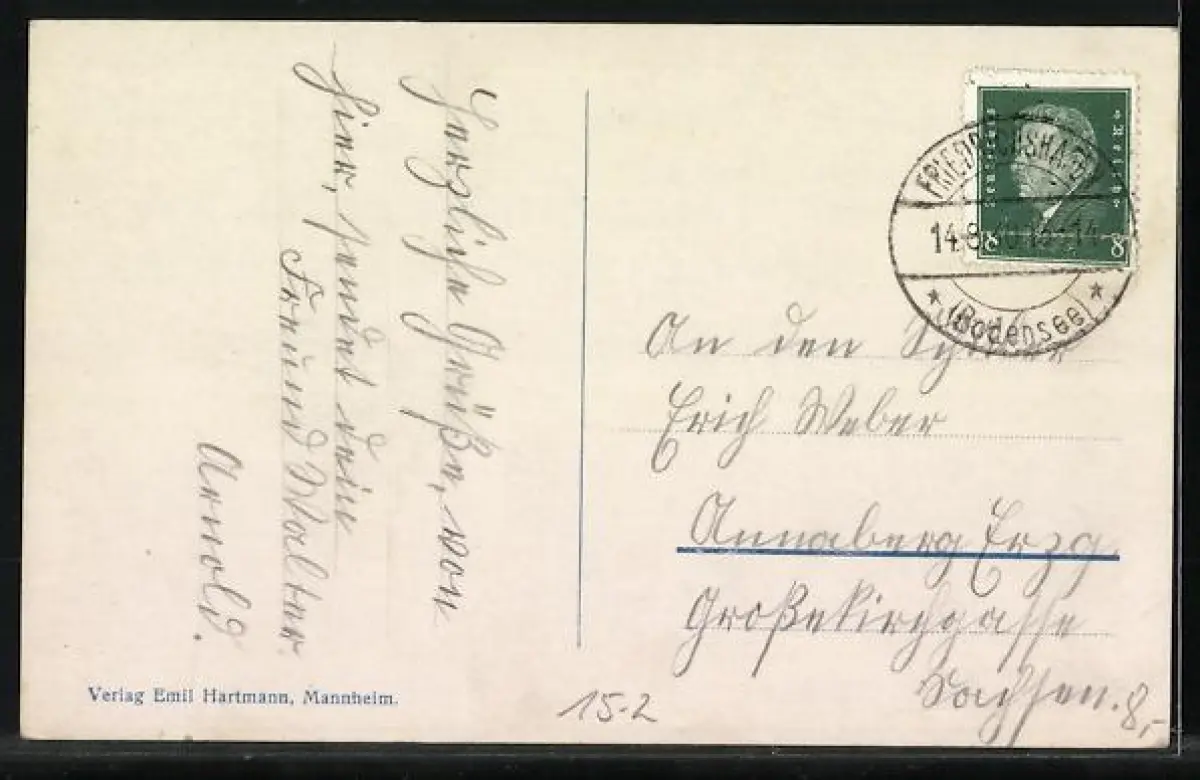 Herzliche Grüße, von
hier, sendet dein
Freund Walter
Arnold.
Verlag Emil Hartmann, Mannheim.
15-2
Deutsches Reich
8 8
FRIEDRICHSHAFEN
14.8.
(Bodensee)
An den Schüler
Erich Weber
Annaberg Erzg.
Großekirchgasse
Sachsen.
8,-